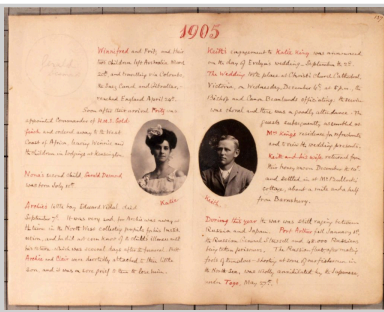 1905
Winnifred and Ford, and their
two children left Australia March
20th, and travelling via Colombo,
the Suez Canal and Gibraltar,
reached England April 26th.
Some after this arrival Ford was
appointed Commander of H.M.S.
and ordered away to the West
Coast of Africa, leaving Winnie and
the children in lodging at Kensington
Nora's second child, Gerald Durand
was born July 10th.
Archie's little boy, Edward Vidal died
September 7th. It was very sad, for Archie was away up
the river in the North West
and he did not even know of the child's illness until
his return, which was several days after the funeral. Both
Archie and Clair were devotedly attached to their little
son, and it was a sore grief to them to lose him.
Katie.
Keith's engagement to Katie King was announced
on the day of Evelyn's wedding, September 20th.
The Wedding took place at Christ Church Cathedral,
Victoria, on Wednesday, December 6th at 2 p.m., the
Bishop and Canon Beanlands officiating. The service
was choral and there was a goodly attendance. The
guests subsequently assembled at
Mrs King's residence for refreshments
and to view the wedding presents.
Keith and his wife returned from
their honeymoon December 20th
and settled in at
cottage, about a mile and a half
from Barnsbury.
Keith.
During this year the war was still raging between
Russia and Japan. Port Arthur fell January 1st,
the Russian General Stoessel and
being taken prisoners. The Russian fleet after making
fools of themselves shooting at some of our fishermen in
the North Sea, was wholly annihilated by the Japanese,
under Togo, May 27th.